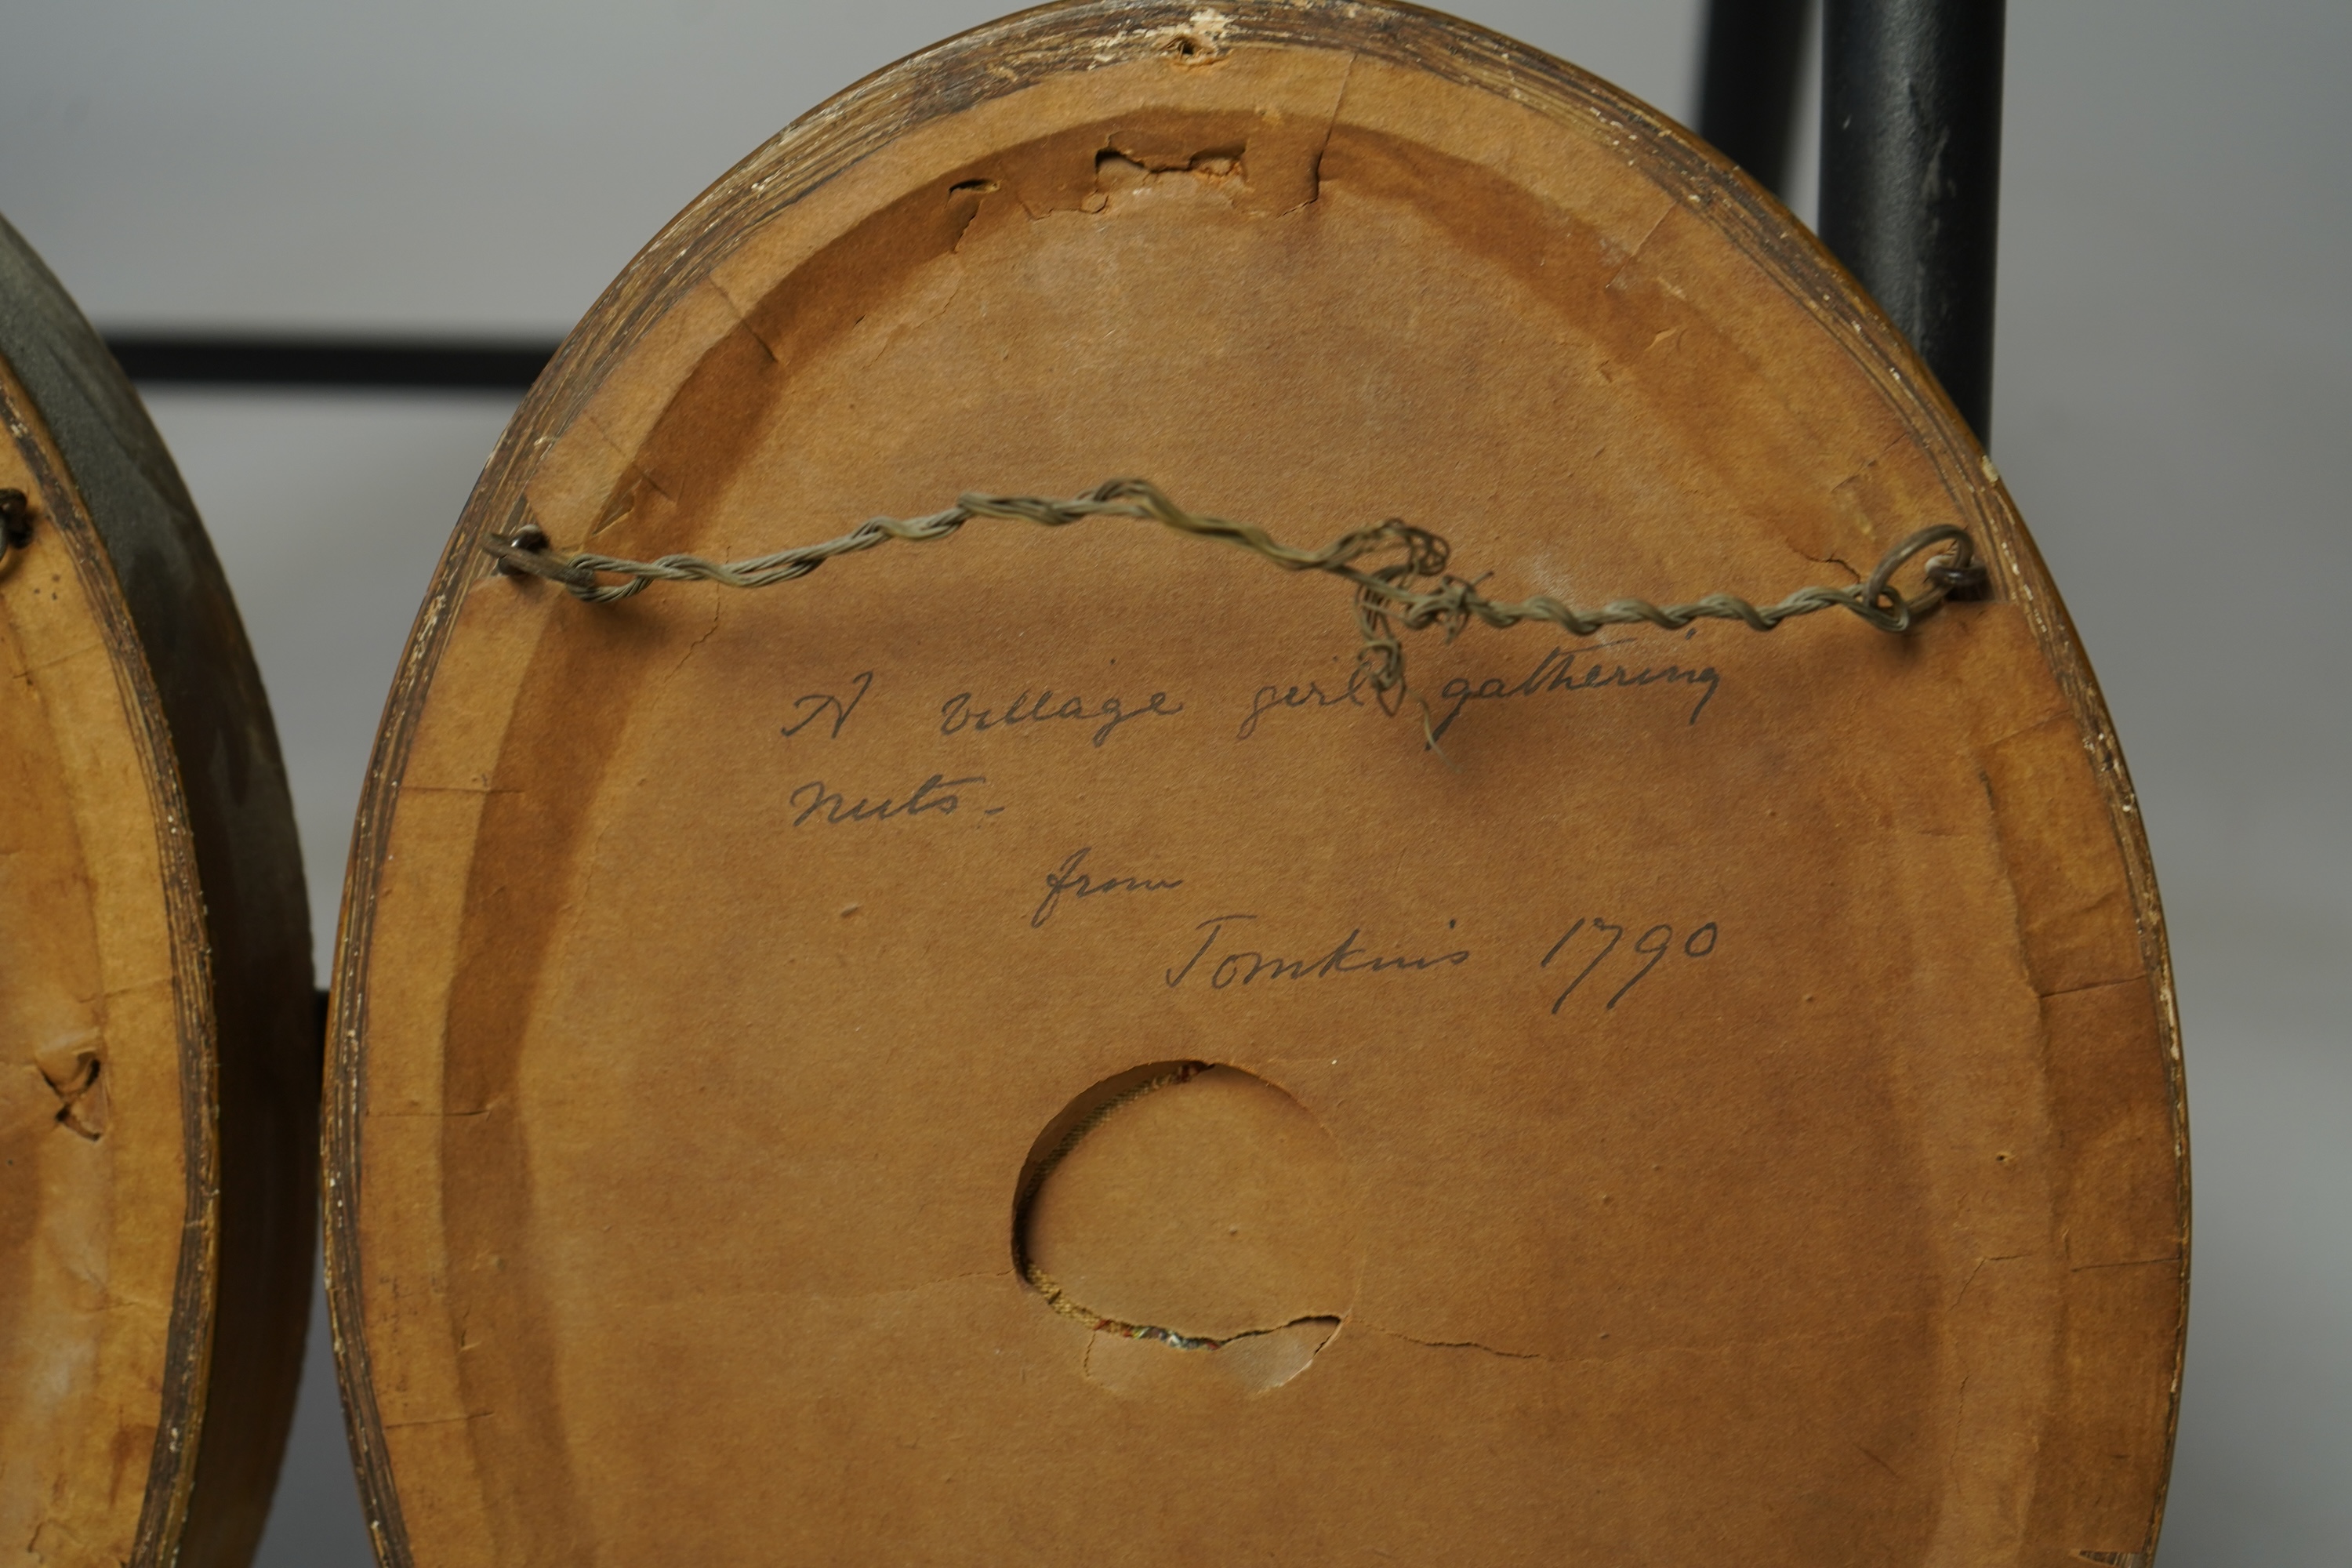 A village girl gathering
nuts -
from
Tomkins 1790